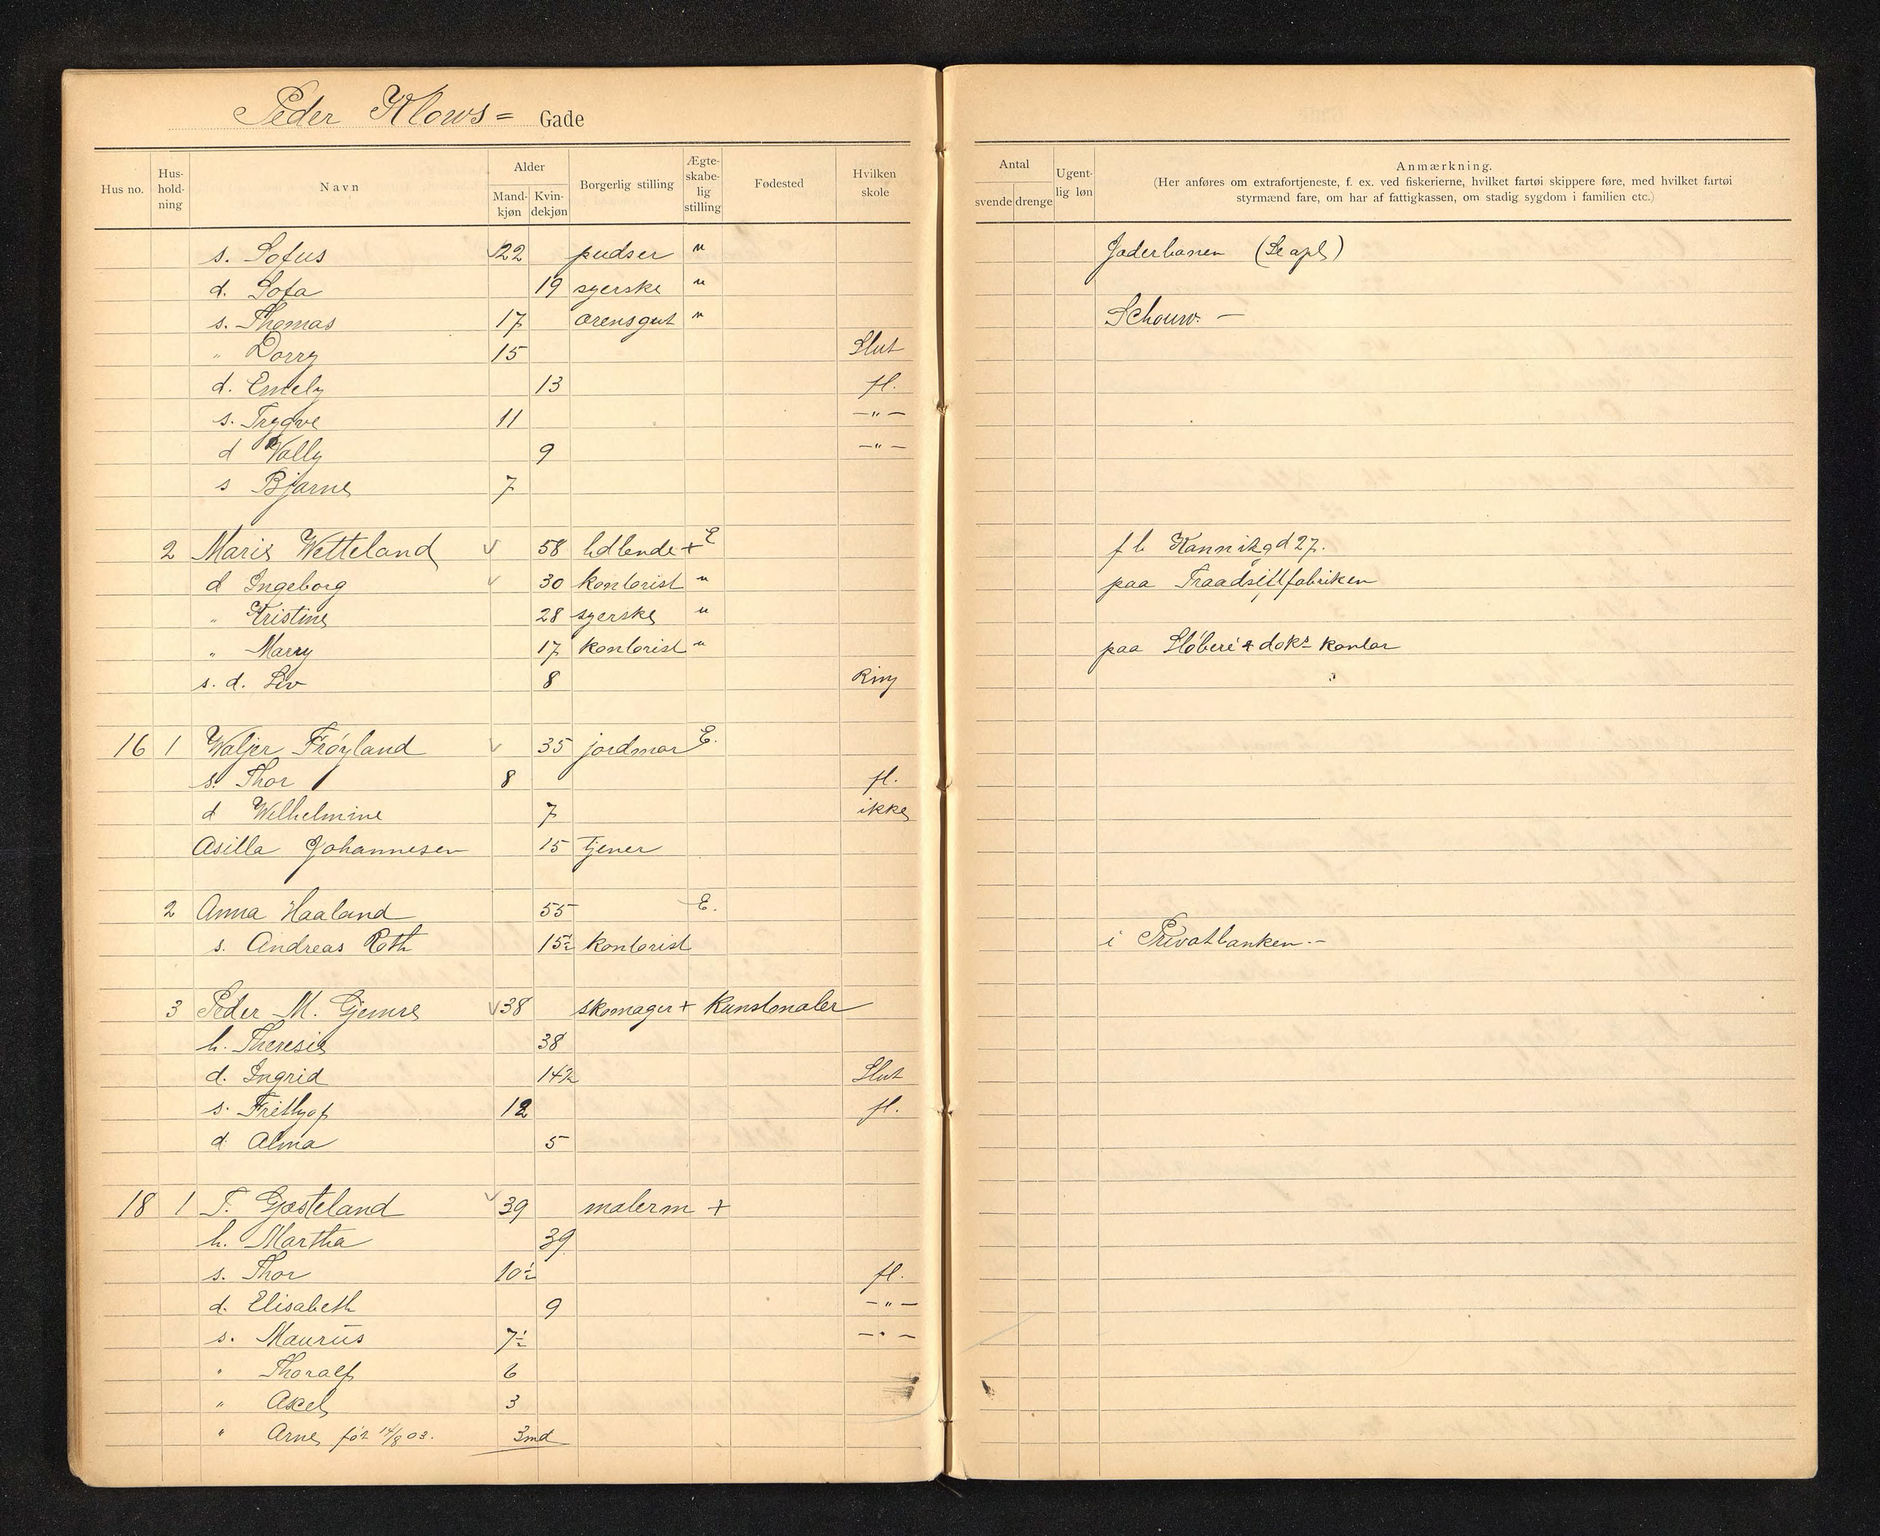 Peder Klows= Gade
Hus no. Hus-hold-ning Navn Alder Mand-kjøn Kvin-dekjøn Borgerlig stilling Ægte-skabe-lig stilling Fødested Hvilken skole
Antal svende drenge Ugent-lig løn Anmærkning.
(Her anføres om extrafortjeneste, f. ex. ved fiskerierne, hvilket fartøi skippere føre, med hvilket fartøi
styrmænd fare, om har af fattigkassen, om stadig sygdom i familien etc.)
s. Sofus 22 pudser " Jæderbanen
d. Sofa 19 syerske "
s. Thomas 17 "  Schouw. –
" Dorry 15 Slut
d. Emely 13 fl.
s. Trygve 11 –"–
d Vally 9 –"–
s Bjarne 7
2 Marie Wetteland 58 + E f b Kannikgd 27.
d Ingeborg 30 kontorist " paa
" Kristine 28 syerske "
" Marry 17 kontorist " paa Støberi & dokr kontor
s. d. Liv 8 Ring
16 1 Valjer Frøyland 35 jordmor E.
s. Thor 8 fl.
d Wilhelmine 7 ikke
Asilla Johannesen 15 tjener
2 Anna Haaland 55 E.
s. Andreas Roth 15½ kontorist i Privatbanken. –
3 Peder M. Gjemre 38 skomager + Kunstmaler
h. Theresie 38
d. Ingrid 14½ Slut
s. Frithjof 12 fl.
d. Alma 5
18 1 T. Gjesteland 39 malerm +
h. Martha 39
s. Thor 10½ fl.
d. Elisabeth 9 –"–
s. Maurus 7½ –"–
" Thoralf 6
" Axel 3
" Arne før 14/8 03. 3md